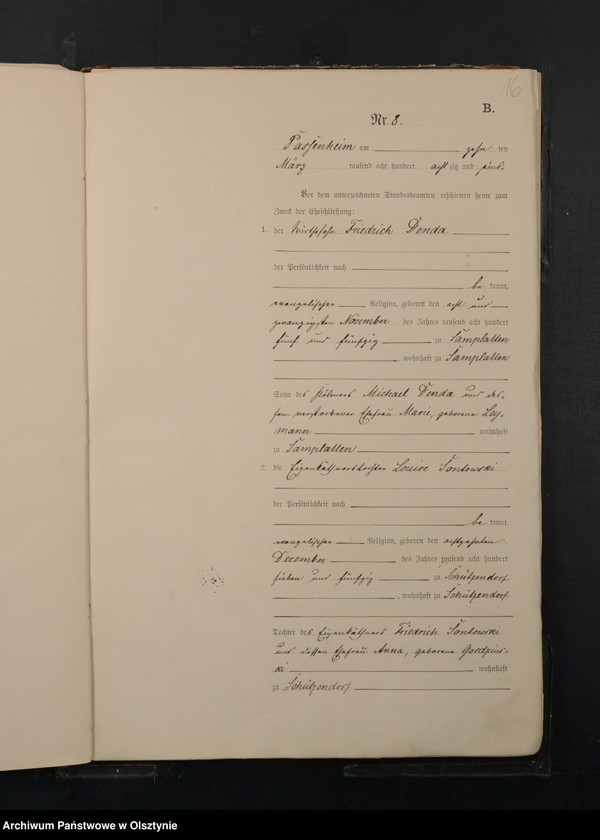 16
B.
Nr. 8.
Passenheim am zehn ten
März tausend acht hundert acht zig und eins.
Vor dem unterzeichneten Standesbeamten erschienen heute zum
Zweck der Eheschließung:
1. der Wirthssohn Friedrich Denda
der Persönlichkeit nach
be kannt,
evangelischer Religion, geboren den acht und
zwanzigsten November des Jahres tausend acht hundert
fünf und fünfzig zu Samplatten
, wohnhaft zu Samplatten
Sohn des Kölmers Michael Denda und des-
sen verstorbener Ehefrau Marie, geborene Ley-
mann wohnhaft
zu Samplatten
2. die Eigenkäthnerstochter Louise Sontowski
der Persönlichkeit nach
be kannt,
evangelischer Religion, geboren den achtzehnten
December des Jahres tausend acht hundert
sieben und fünfzig zu Schützendorf
, wohnhaft zu Schützendorf
Tochter des Eigenkäthners Friedrich Sontowski
und dessen Ehefrau Anna, geborene
wohnhaft
zu Schützendorf
Archiwum Państwowe w Olsztynie